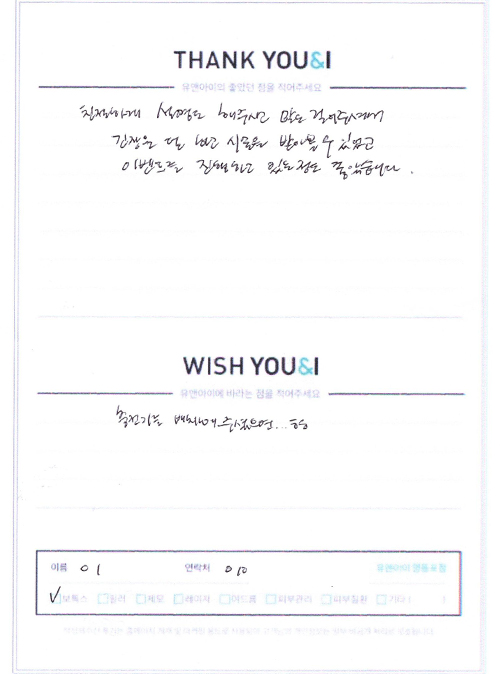 THANK YOU&I
유앤아이의 좋았던 점을 적어주세요
친절하게 설명도 해주시고 말도 걸어주셔서
긴장을 덜 하고 시술을 받아볼 수 있었고
이벤트를 진행하고 있는점도 좋았습니다.
WISH YOU&I
유앤아이에 바라는 점을 적어주세요
충전기를 배치해주셨으면...ㅎㅎ
이름 이 연락처 010 유앤아이의
✓보톡스 필러 제모 레이저 여드름 피부관리 피부질환 기타 ( )